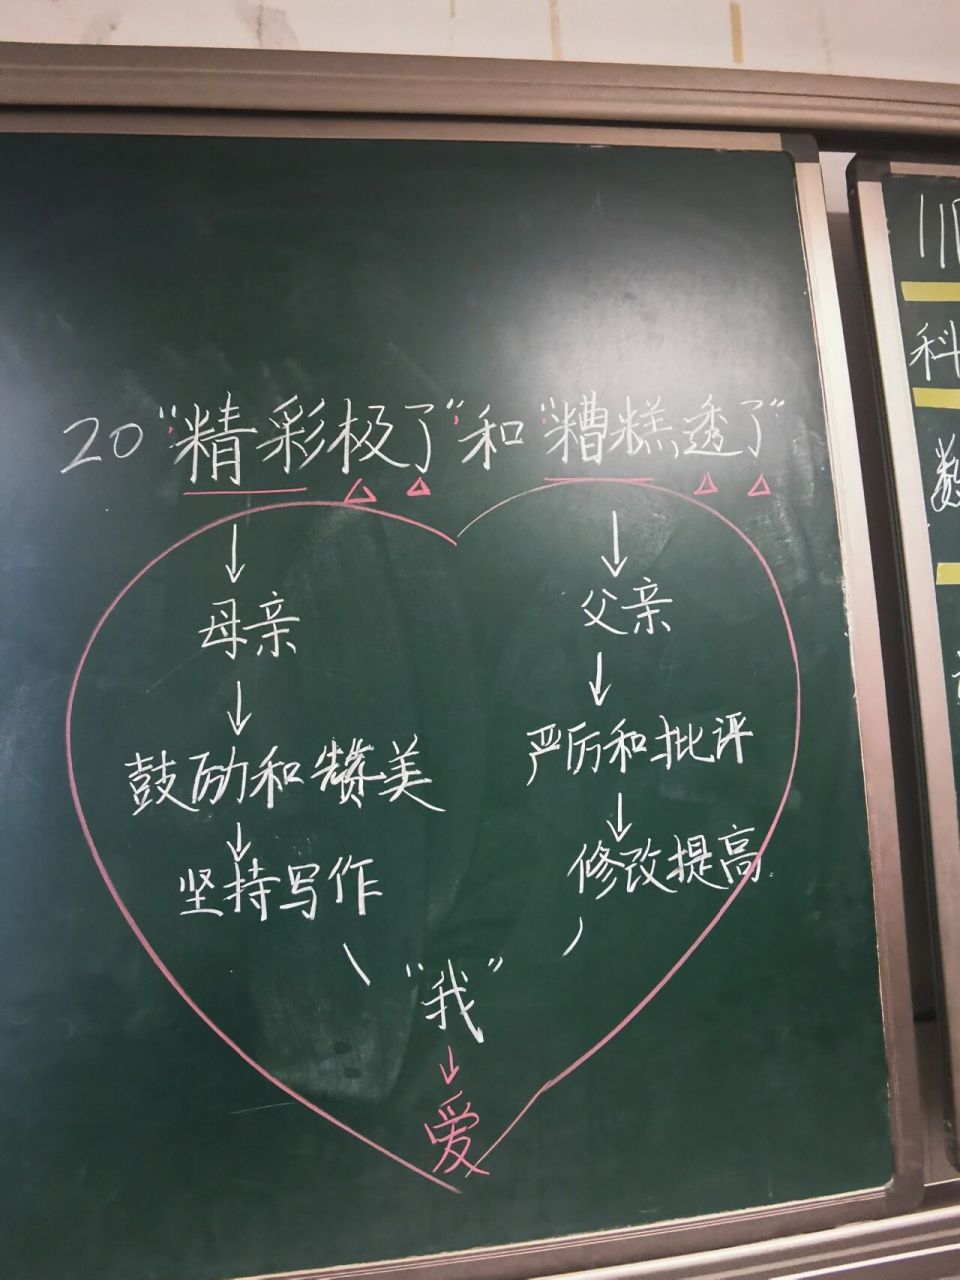 20“精彩极了”和“糟糕透了”
母亲 父亲
鼓励和赞美 严厉和批评
坚持写作 修改提高
“我”
爱
科
数